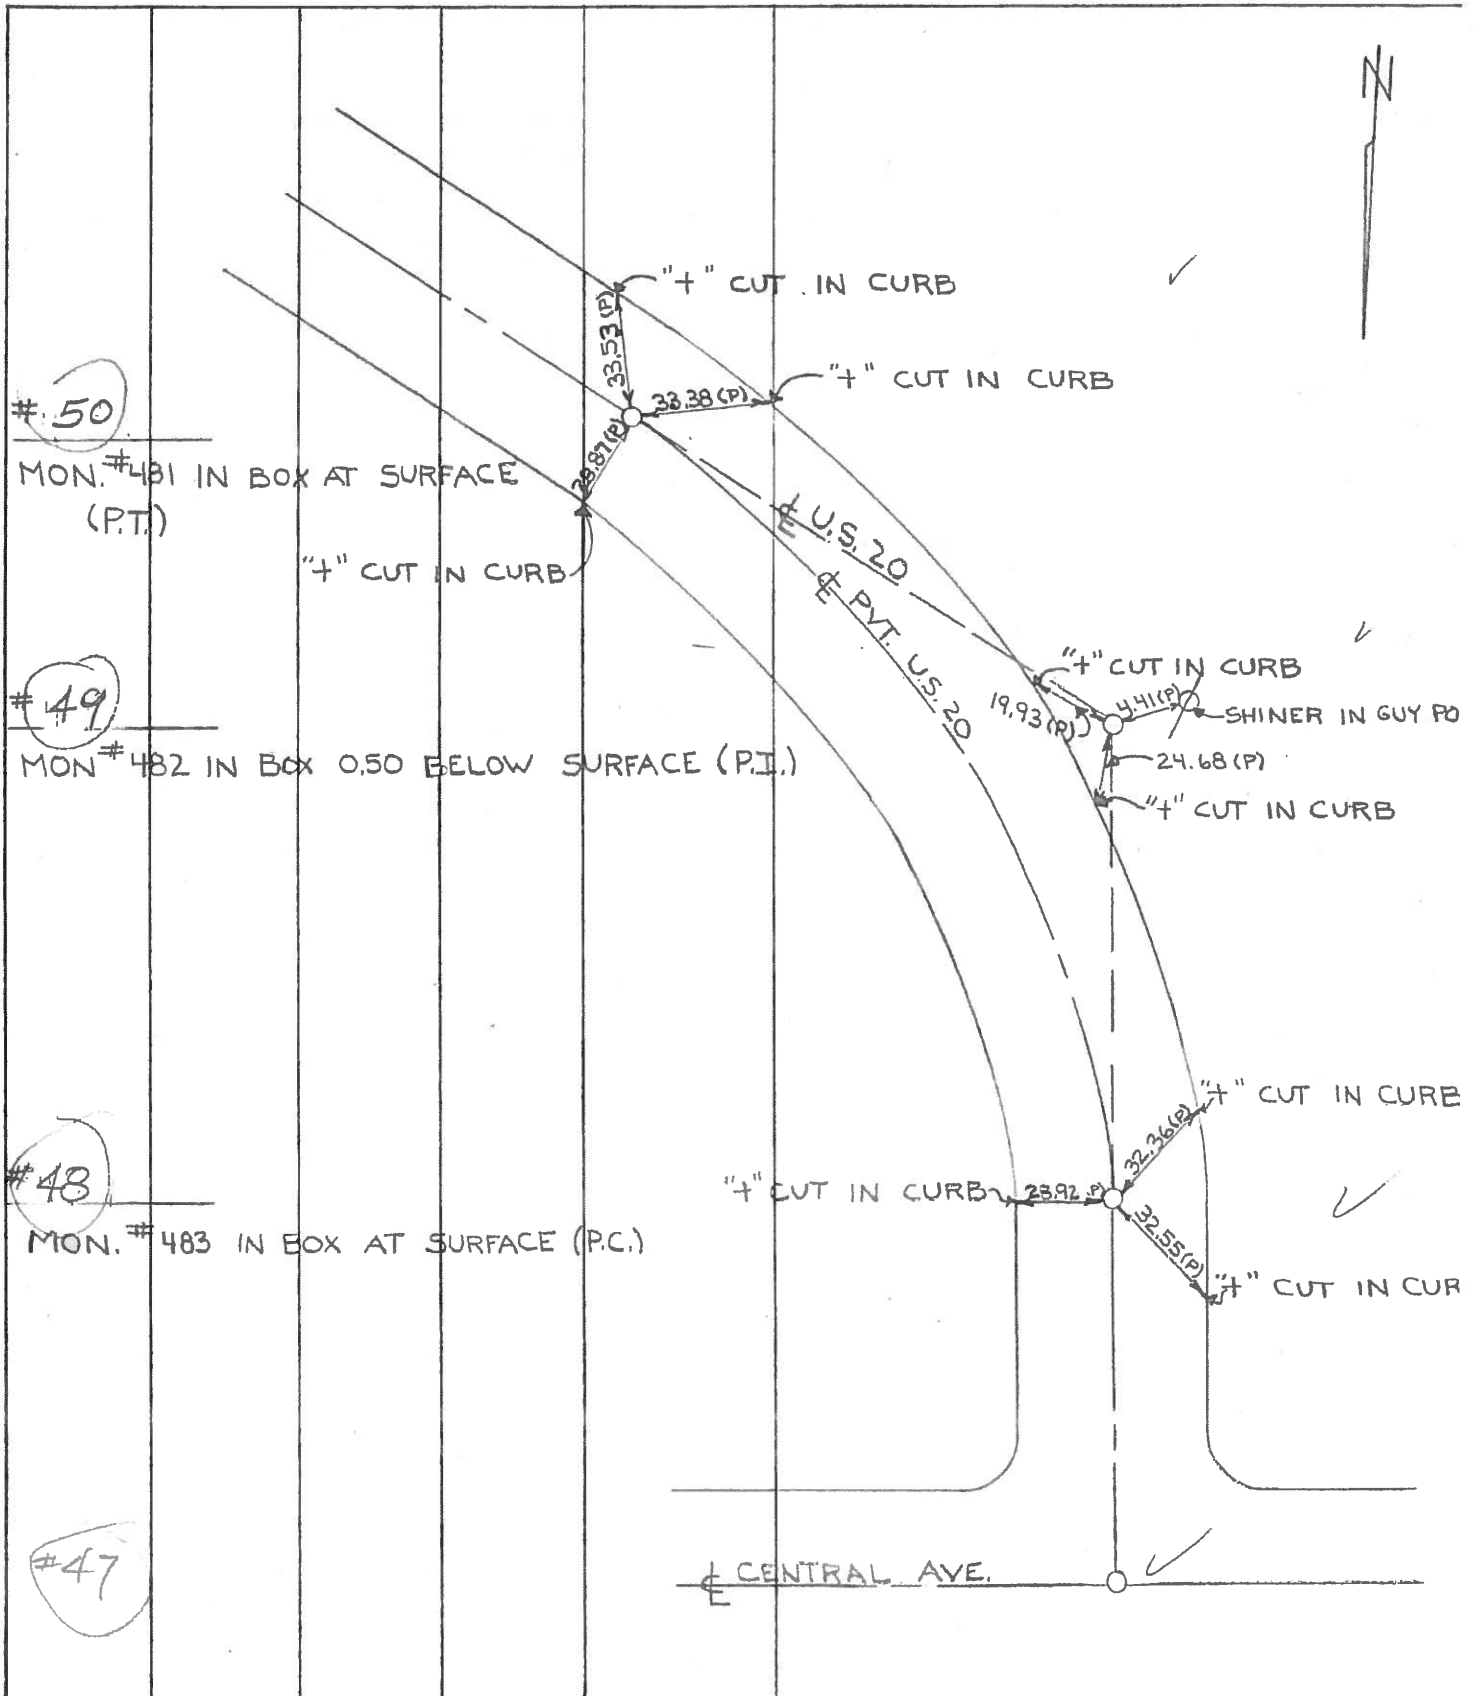 N
"+" CUT IN CURB
33.53 (P)
"+" CUT IN CURB
33.38 (P)
# 50
MON. #481 IN BOX AT SURFACE
(P.T.)
"+" CUT IN CURB
℄ U.S. 20
℄ PVT. U.S. 20
"+" CUT IN CURB
19.93 (P)
4.41 (P)
SHINER IN GUY PO
24.68 (P)
"+" CUT IN CURB
# 49
MON #482 IN BOX 0.50 BELOW SURFACE (P.I.)
"+" CUT IN CURB
32.36 (P)
# 48
"+" CUT IN CURB
MON. #483 IN BOX AT SURFACE (P.C.)
32.55 (P)
"+" CUT IN CUR
#47
℄ CENTRAL AVE.